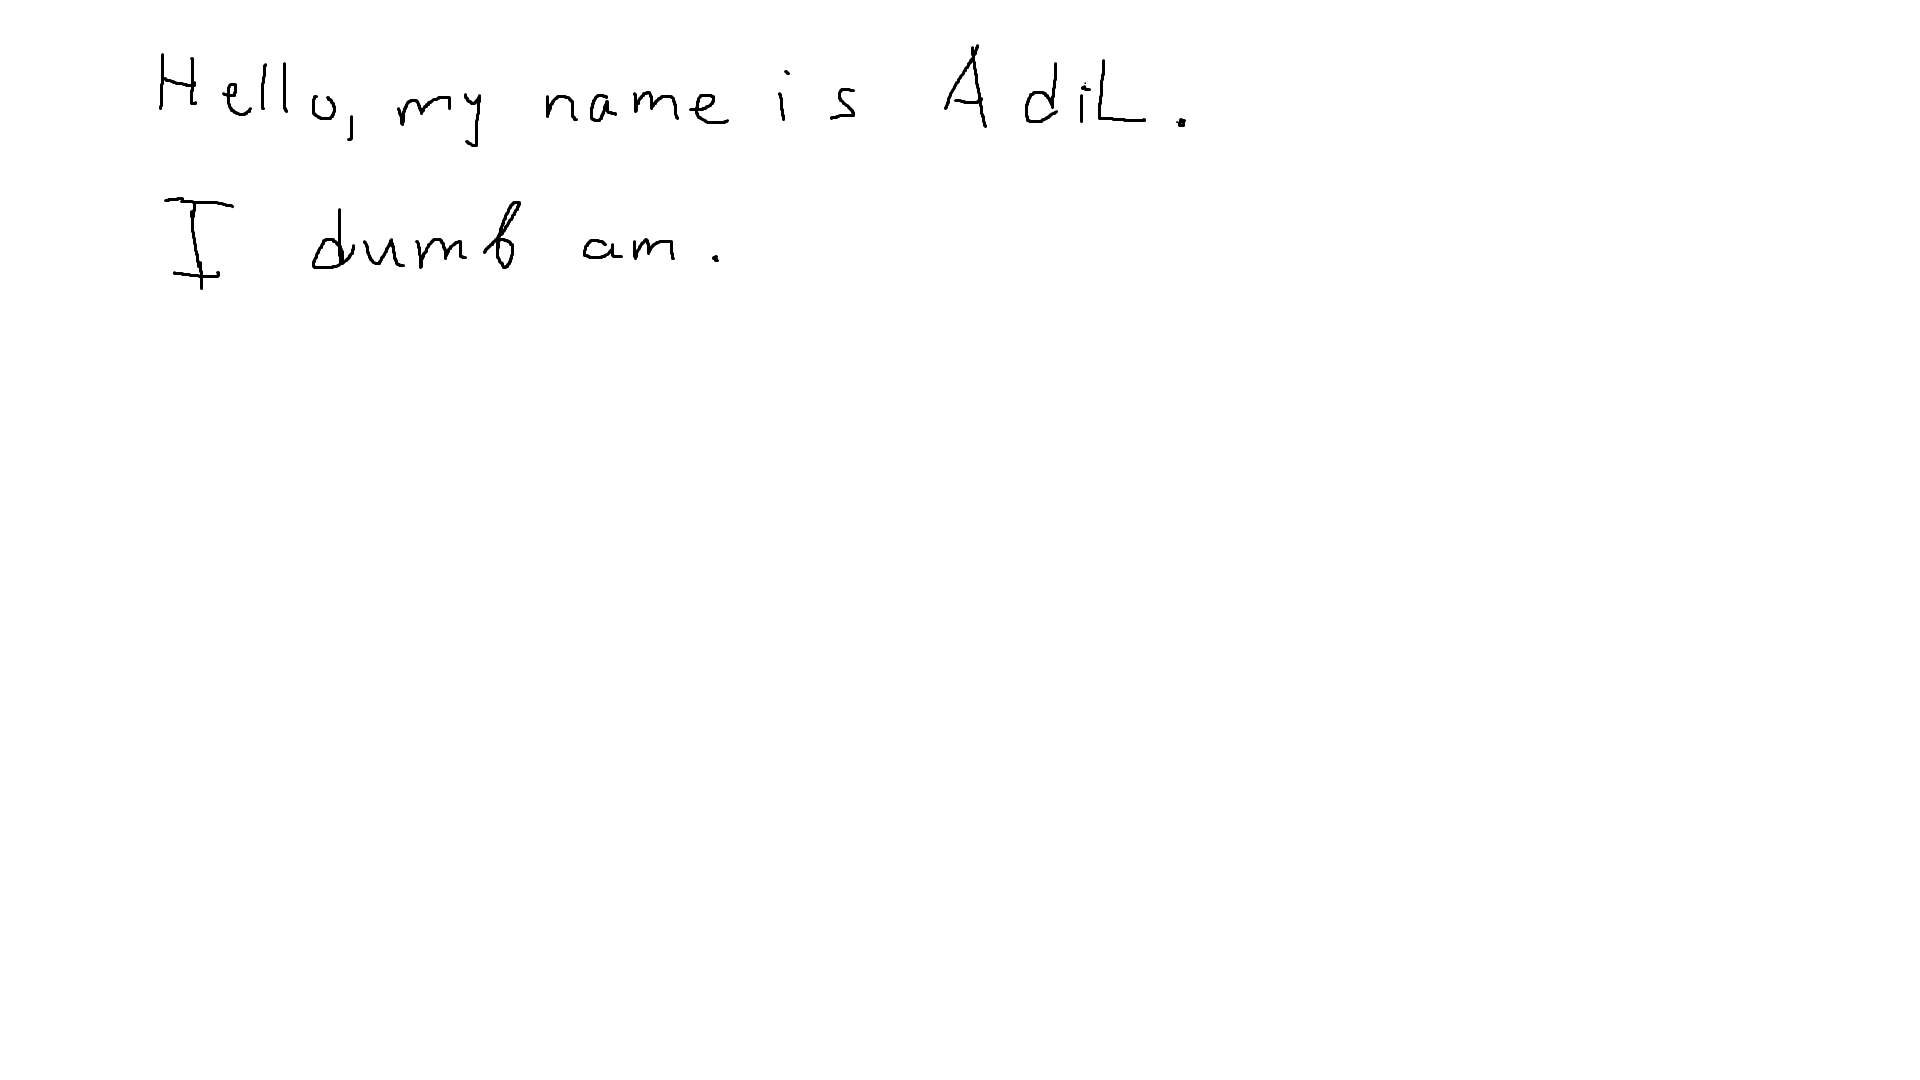 Hello, my name is AdiL.
I dumb am.